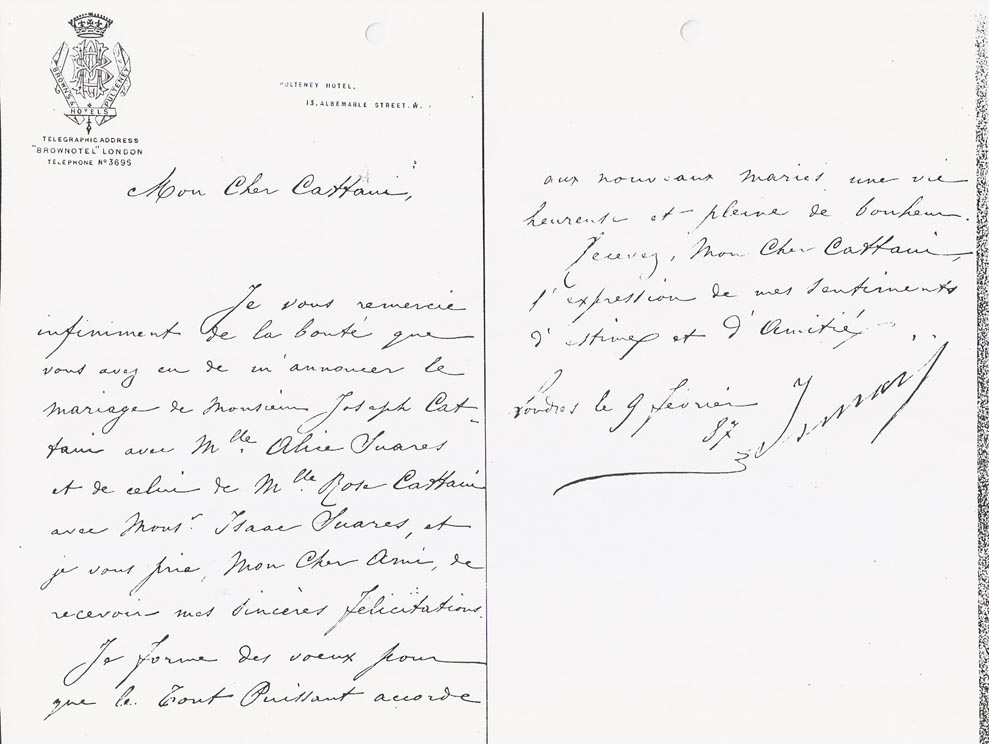 BROWNS & PULTENEY
HOTELS
TELEGRAPHIC ADDRESS
"BROWNOTEL" LONDON
TELEPHONE Nº 3695
PULTENEY HOTEL.
13, ALBEMARLE STREET. W.
Mon Cher Cattaui,
Je vous remercie
infiniment de la bonté que
vous avez eu de m'annoncer le
mariage de Monsieur Joseph Cat-
taui avec Mlle. Alice Suares
et de celui de Mlle Rose Cattaui
avec Monsr. Isaac Suares, et
je vous prie, Mon Cher Ami, de
recevoir mes sincères félicitations.
Je forme des voeux pour
que le Tout Puissant accorde
aux nouveaux mariés une vie
heureuse et pleine de bonheur.
Recevez, Mon Cher Cattaui,
l'expression de mes sentiments
d'estime et d'Amitié
Londres le 9 février
87